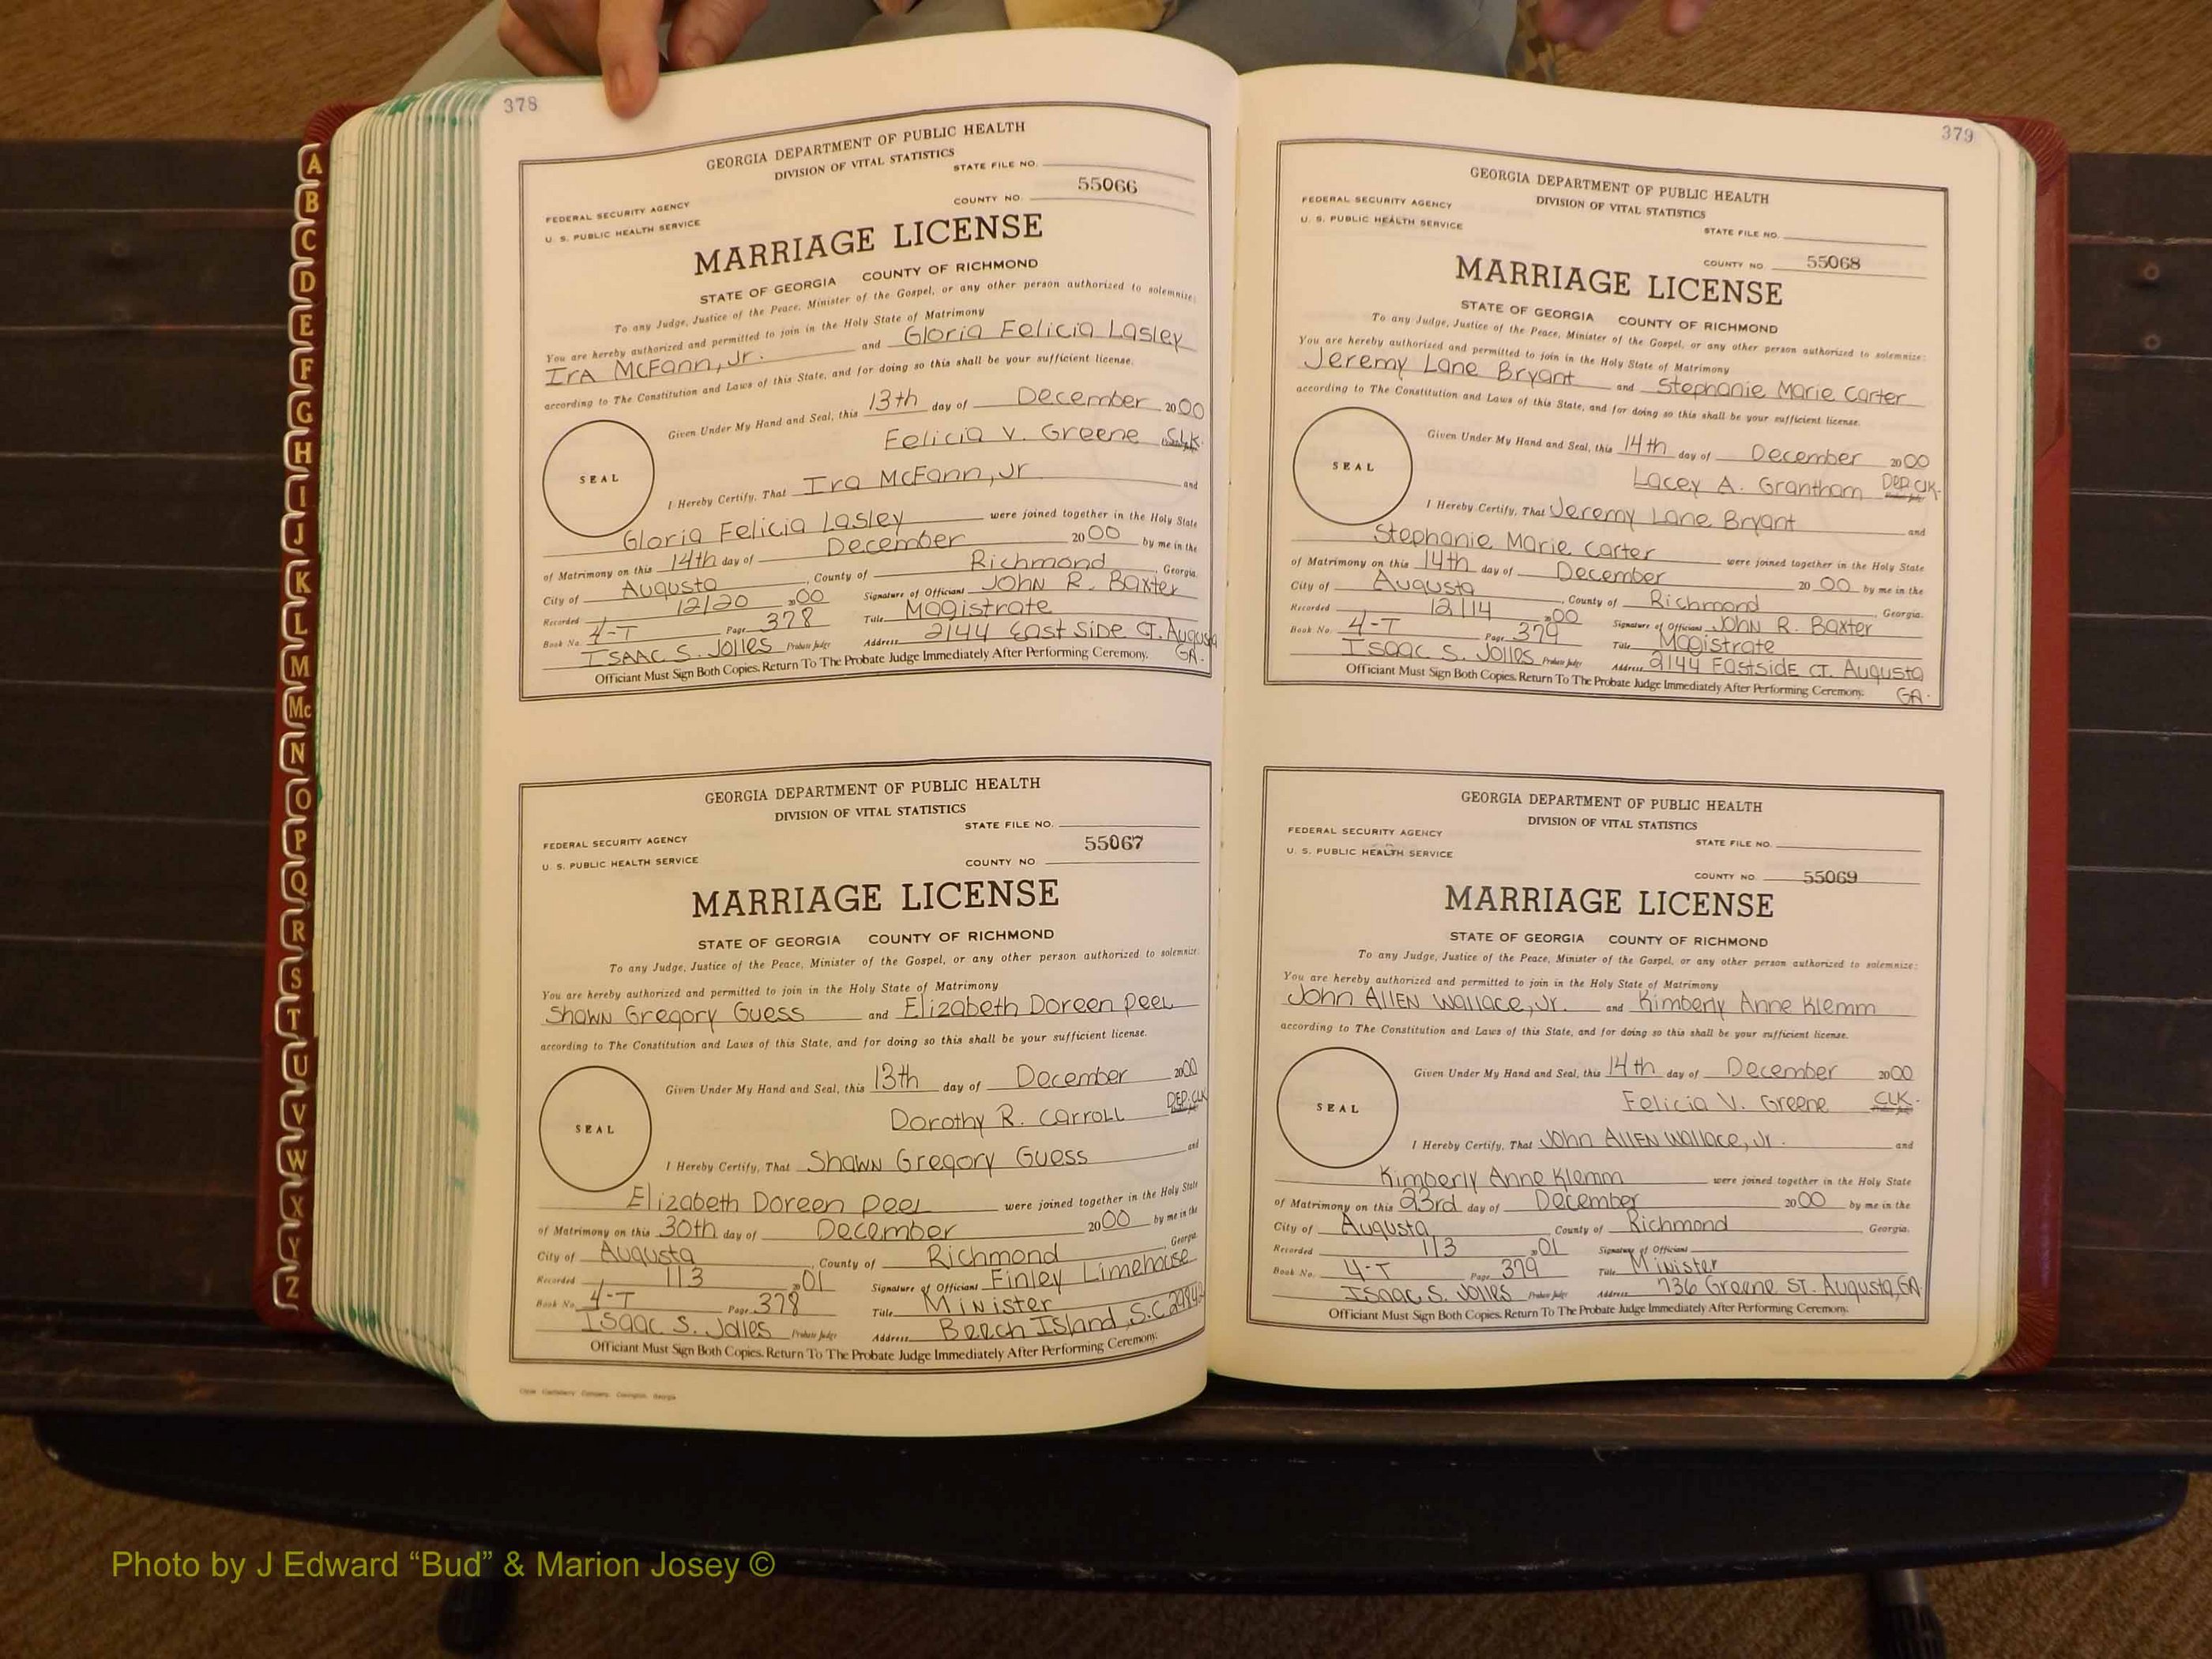 378
GEORGIA DEPARTMENT OF PUBLIC HEALTH
DIVISION OF VITAL STATISTICS
STATE FILE NO.
55066
FEDERAL SECURITY AGENCY
COUNTY NO.
U. S. PUBLIC HEALTH SERVICE
MARRIAGE LICENSE
STATE OF GEORGIA COUNTY OF RICHMOND
To any Judge, Justice of the Peace, Minister of the Gospel, or any other person authorized to solemnize:
You are hereby authorized and permitted to join in the Holy State of Matrimony
IrA McFann, Jr. and Gloria Felicia Lasley
according to The Constitution and Laws of this State, and for doing so this shall be your sufficient license.
Given Under My Hand and Seal, this 13th day of December 2000
Felicia V. Greene
SEAL
I Hereby Certify, That Ira McFann, Jr and
Gloria Felicia Lasley were joined together in the Holy State
of Matrimony on this 14th day of December 2000 by me in the
City of Augusta, County of Richmond, Georgia.
Recorded 12/20 00 Signature of Officiant JOHN R. Baxter
Book No. 4-T Page 378 Title Magistrate
ISAAC S. Jolles Probate Judge Address 2144 East Side CT. Augusta GA.
Officiant Must Sign Both Copies. Return To The Probate Judge Immediately After Performing Ceremony.
GEORGIA DEPARTMENT OF PUBLIC HEALTH
DIVISION OF VITAL STATISTICS
STATE FILE NO.
FEDERAL SECURITY AGENCY
55067
U. S. PUBLIC HEALTH SERVICE
COUNTY NO
MARRIAGE LICENSE
STATE OF GEORGIA COUNTY OF RICHMOND
To any Judge, Justice of the Peace, Minister of the Gospel, or any other person authorized to solemnize:
You are hereby authorized and permitted to join in the Holy State of Matrimony
Shawn Gregory Guess and Elizabeth Doreen Peel
according to The Constitution and Laws of this State, and for doing so this shall be your sufficient license.
Given Under My Hand and Seal, this 13th day of December 2000
Dorothy R. Carroll DEP. CLK
SEAL
I Hereby Certify, That Shawn Gregory Guess and
Elizabeth Doreen Peel were joined together in the Holy State
of Matrimony on this 30th day of December 2000 by me in the
City of Augusta, County of Richmond, Georgia.
Recorded 1/3 01 Signature of Officiant Finley Limehouse
Book No. 4-T Page 378 Title Minister
Isaac S. Jolles Probate Judge Address Beech Island, S.C. 29842
Officiant Must Sign Both Copies. Return To The Probate Judge Immediately After Performing Ceremony.
379
GEORGIA DEPARTMENT OF PUBLIC HEALTH
DIVISION OF VITAL STATISTICS
FEDERAL SECURITY AGENCY
U. S. PUBLIC HEALTH SERVICE
STATE FILE NO.
COUNTY NO 55068
MARRIAGE LICENSE
STATE OF GEORGIA COUNTY OF RICHMOND
To any Judge, Justice of the Peace, Minister of the Gospel, or any other person authorized to solemnize:
You are hereby authorized and permitted to join in the Holy State of Matrimony
Jeremy Lane Bryant and Stephanie Marie Carter
according to The Constitution and Laws of this State, and for doing so this shall be your sufficient license.
Given Under My Hand and Seal, this 14th day of December 2000
Lacey A. Grantham DEP. CLK.
SEAL
I Hereby Certify, That Jeremy Lane Bryant and
Stephanie Marie Carter were joined together in the Holy State
of Matrimony on this 14th day of December 2000 by me in the
City of Augusta, County of Richmond, Georgia.
Recorded 12/14 00 Signature of Officiant JOHN R. Baxter
Book No. 4-T Page 379 Title Magistrate
Isaac S. Jolles Probate Judge Address 2144 Eastside CT. Augusta GA.
Officiant Must Sign Both Copies. Return To The Probate Judge Immediately After Performing Ceremony.
GEORGIA DEPARTMENT OF PUBLIC HEALTH
DIVISION OF VITAL STATISTICS
FEDERAL SECURITY AGENCY
STATE FILE NO.
U. S. PUBLIC HEALTH SERVICE
COUNTY NO 55069
MARRIAGE LICENSE
STATE OF GEORGIA COUNTY OF RICHMOND
To any Judge, Justice of the Peace, Minister of the Gospel, or any other person authorized to solemnize:
You are hereby authorized and permitted to join in the Holy State of Matrimony
John Allen Wallace, Jr. and Kimberly Anne Klemm
according to The Constitution and Laws of this State, and for doing so this shall be your sufficient license.
Given Under My Hand and Seal, this 14th day of December 2000
Felicia V. Greene CLK.
SEAL
I Hereby Certify, That John Allen Wallace, Jr. and
Kimberly Anne Klemm were joined together in the Holy State
of Matrimony on this 23rd day of December 2000 by me in the
City of Augusta County of Richmond Georgia.
Recorded 1/3 01 Signature of Officiant
Book No. 4-T Page 379 Title Minister
Isaac S. Jolles Probate Judge Address 736 Greene ST. Augusta, GA.
Officiant Must Sign Both Copies. Return To The Probate Judge Immediately After Performing Ceremony.
A
B
C
D
E
F
G
H
I
J
K
L
M
Mc
N
O
P
Q
R
S
T
U
V
W
X
Y
Z
Photo by J Edward “Bud” & Marion Josey ©